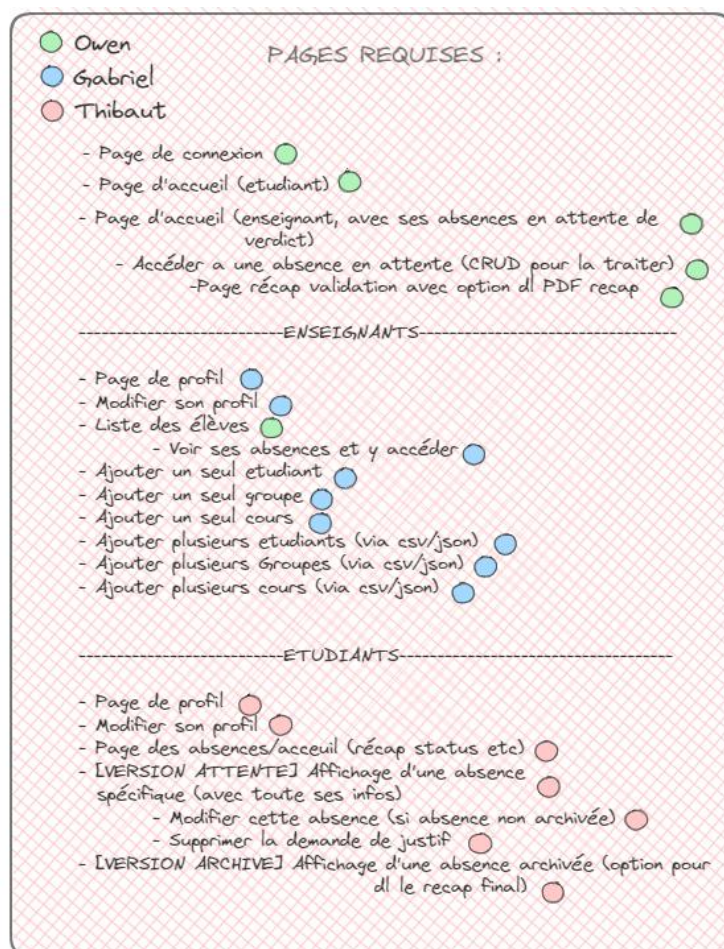 Owen
PAGES REQUISES :
Gabriel
Thibaut
- Page de connexion
- Page d'accueil (etudiant)
- Page d'accueil (enseignant, avec ses absences en attente de
verdict)
- Accéder a une absence en attente (CRUD pour la traiter)
-Page récap validation avec option dl PDF recap
---------------------------ENSEIGNANTS----------------------------------
- Page de profil
- Modifier son profil
- Liste des élèves
- Voir ses absences et y accéder
- Ajouter un seul etudiant
- Ajouter un seul groupe
- Ajouter un seul cours
- Ajouter plusieurs etudiants (via csv/json)
- Ajouter plusieurs Groupes (via csv/json)
- Ajouter plusieurs cours (via csv/json)
---------------------------ETUDIANTS------------------------------------
- Page de profil
- Modifier son profil
- Page des absences/acceuil (récap status etc)
- [VERSION ATTENTE] Affichage d'une absence
spécifique (avec toute ses infos)
- Modifier cette absence (si absence non archivée)
- Supprimer la demande de justif
- [VERSION ARCHIVE] Affichage d'une absence archivée (option pour
dl le recap final)